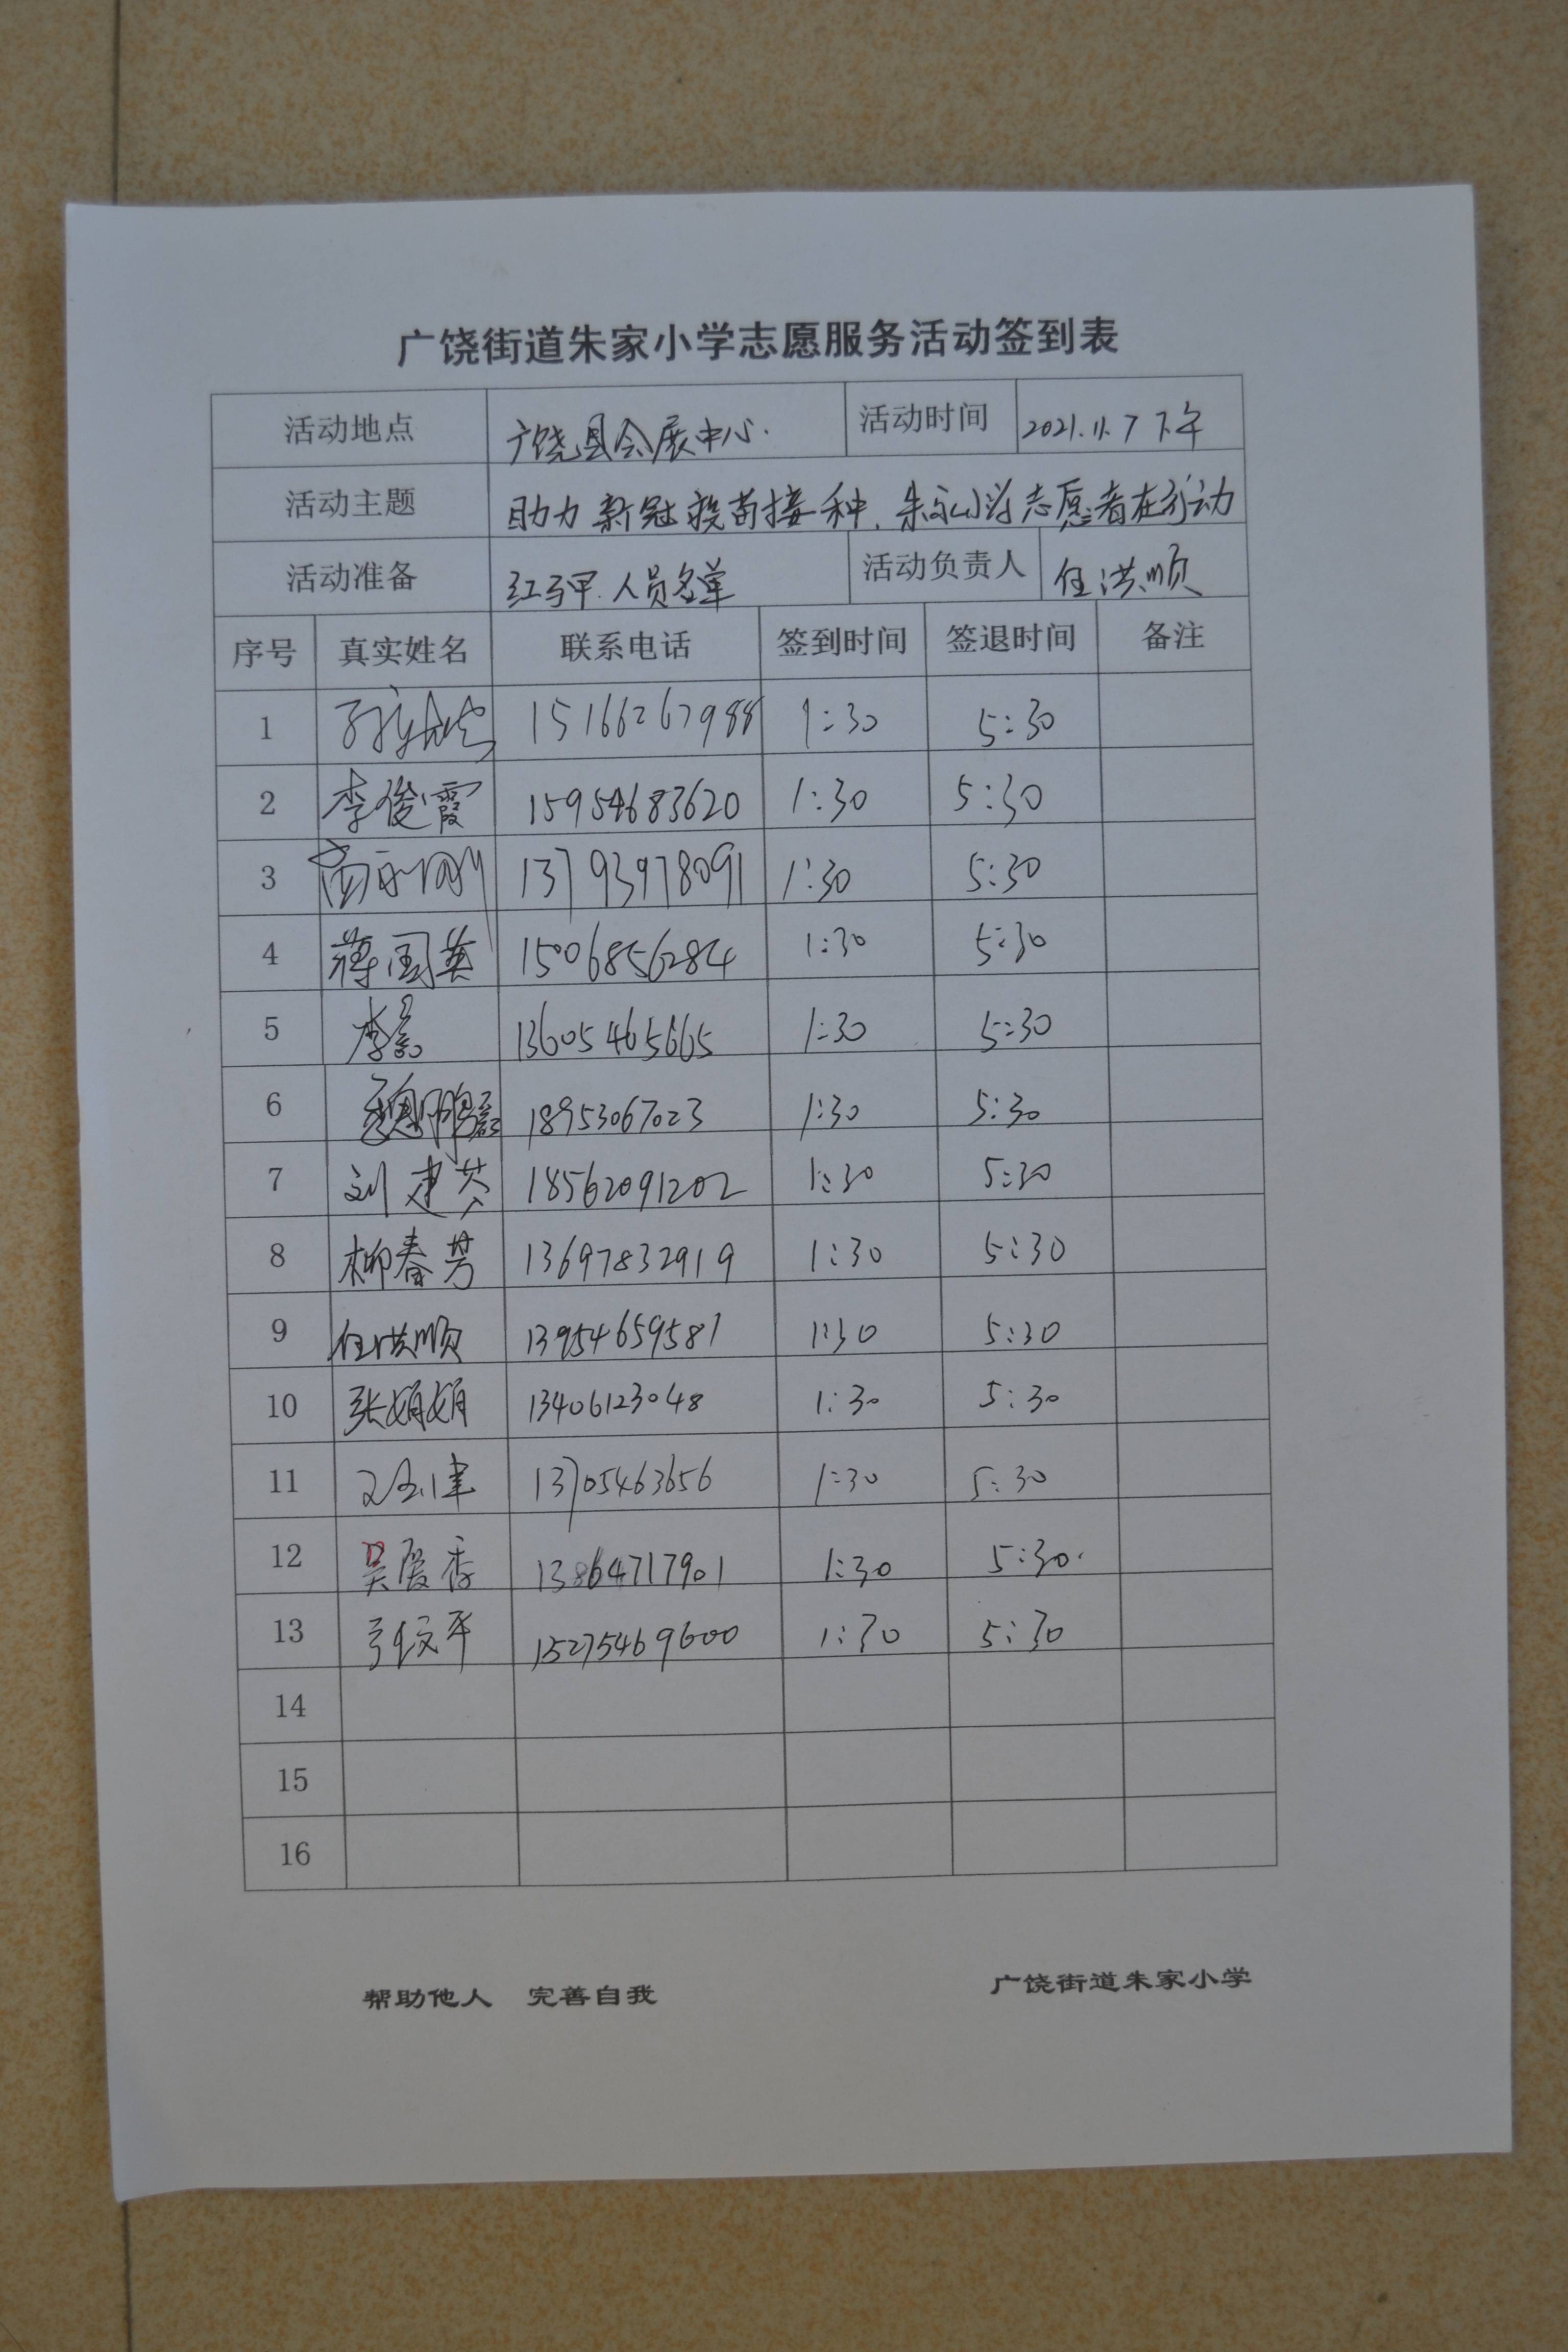 广饶街道朱家小学志愿服务活动签到表
活动地点 广饶县会展中心. 活动时间 2021.11.7 下午
活动主题 助力新冠疫苗接种、朱家小学志愿者在行动
活动准备 红马甲 人员名单 活动负责人 任洪顺
序号 真实姓名 联系电话 签到时间 签退时间 备注
1 15166267988 1:30 5:30
2 李俊霞 15954683620 1:30 5:30
3 13793978091 1:30 5:30
4 蒋国英 15006856284 1:30 5:30
5 李 13605465665 1:30 5:30
6 魏鹏磊 18953067023 1:30 5:30
7 刘建芬 18562091202 1:30 5:30
8 柳春芳 13697832919 1:30 5:30
9 任洪顺 13954659581 1:30 5:30
10 张娟娟 13406123048 1:30 5:30
11 13705463656 1:30 5:30
12 吴爱香 13864717901 1:30 5:30.
13 15275469600 1:30 5:30
14
15
16
帮助他人 完善自我 广饶街道朱家小学